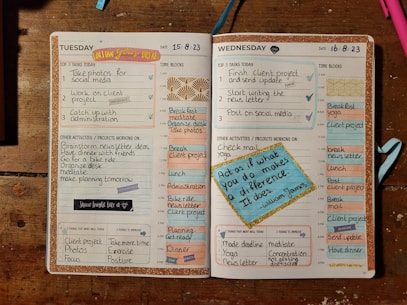 TUESDAY
DATE 15.8.23
TOP 3 TASKS TODAY
TIME BLOCKS
1 Take photos for
social media
2 Work on client
project
3 Catch up with
administration
Breakfast
meditate
Organise desk
Take photos
OTHER ACTIVITIES / PROJECTS WORKING ON:
Brainstorm newsletter idea
Have dinner with friends
Go for a bike ride
Organise desk
meditate
make planning tomorrow
Break
Client project
Lunch
Administration
Bike ride
newsletter
Client project
Planning
Get ready
Dinner
Client project
Photos
Focus
Take more time
Exercise
Posture
WEDNESDAY
DATE 16.8.23
TOP 3 TASKS TODAY
TIME BLOCKS
1 Finish client project
and send update
2 Start writing the
newsletter
3 Post on social media
Breakfast
yoga
Client project
OTHER ACTIVITIES / PROJECTS WORKING ON:
Check mail
yoga
Act as if what
you do makes
a difference.
It does
William James
break
newsletter
Lunch
Client project
Break
mail
Client project
Send update
Have dinner
Made deadline
Yoga
newsletter
mediate
Concentration
not getting
distracted